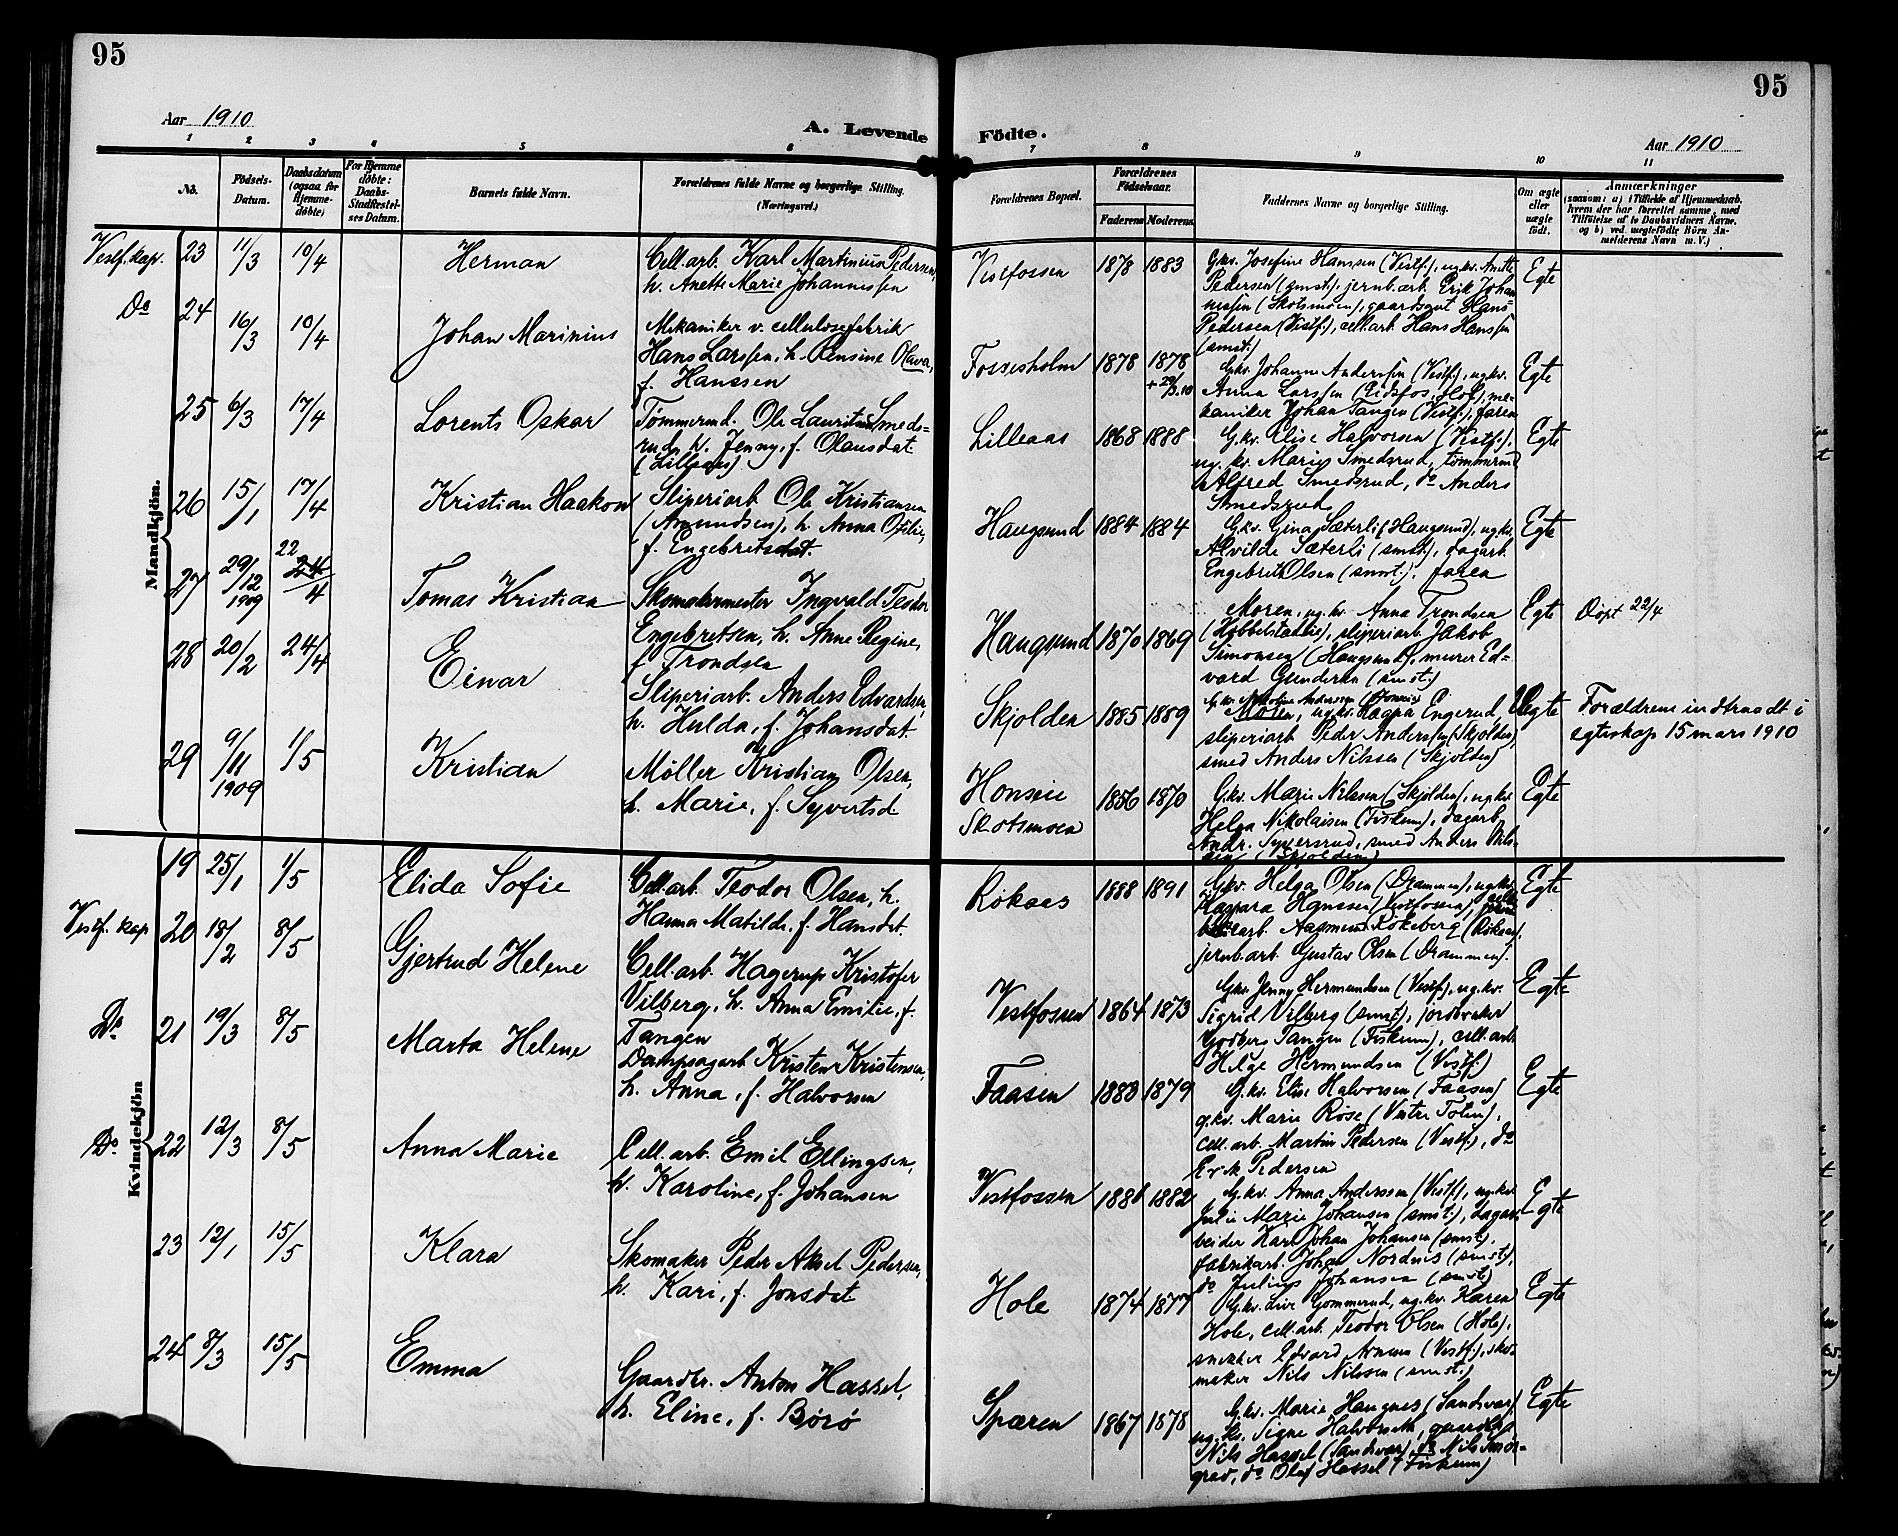 95
95
Aar 1910
A. Levende Födte.
Aar 1910
1 2 3 4 5 6 7 8 9 10 11
No.
Födsels-
Datum.
Daabsdatum
(ogsaa for
Hjemme-
döbte)
For Hjemme
döbte:
Daabs-
Stadfæstel-
ses Datum.
Barnets fulde Navn.
Forældrenes fulde Navne og borgerlige Stilling.
(Næringsvei.)
Forældrenes Bopæl.
Forældrenes
Födselsaar.
Faderens Moderens
Faddernes Navne og borgerlige Stilling.
Om ægte
eller
uægte
født.
Anmærkninger
(saasom: a) i Tilfælde af Hjemmedaab,
hvem der har forrettet samme, med
Tilföielse af to Daabsvidners Navne,
og b) ved uægtefödte Börn An-
melderens Navn m. V.)
Mandkjön.
Vestf. kap. 23 11/3 10/4 Herman
Cell.arb. Karl Martinius Pedersen,
h. Anette Marie Johannessen
Vestfossen 1878 1883
Gkv. Josefine Hanssen (Vestf.), ug.kv. Anette
Pedersen (smst.), jernb.arb. Erik Johan-
nessen (Skotsmoen), gaardsgut Hans
Pedersen (Vestf.), cell.arb. Hans Hanssen
(smst.)
Egte
Do 24 16/3 10/4 Johan Marinius
Mekaniker v. cellulosefabrik
Hans Larssen, h. Rensine Olava,
f. Hanssen
Fossesholm 1878 1878
Gkv. Johanne Anderssen (Vestf.), ug.kv.
Anna Larssen (Eidsfos, Hof), me-
kaniker Johan Tangen (Vestf.), faren
Egte
25 6/3 17/4 Lorents Oskar
Tømmermd. Ole Lauritz Smeds-
rud, h. Jenny, f. Olausdat.
(Lilleaas)
Lilleaas 1868 1888
Gkv. Elise Halvorsen (Vestf.),
ug. kv. Marie Smedsrud, tømmermd
Alfred Smedsrud, do Anders
Smedsrud
Egte
26 15/1 17/4 Kristian Haakon
Sliperiarb Ole Kristiansen
(Amundsen), h. Anna Otilie,
f. Engebretsdat.
Haugsund 1884 1884
Gkv. Gina Sæterli (Haugsund), ugkv.
Alvilde Sæterli (smst.), dagarb.
Engebret Olsen (smst.), faren
Egte
27 29/12 1909 22/4 Tomas Kristian
Skomakermester Ingvald Teodor
Engebretsen, h. Anne Regine,
f. Trondsen
Haugsund 1870 1869
Moren, ug.kv. Anna Trondsen
sliperiarb. Jakob
Simonsen (Haugsund), murer Ed-
vard Gundersen (smst.)
Egte Døpt 22/4
28 20/2 24/4 Einar
Sliperiarb. Anders Edvardsen,
h. Hulda, f. Johansdat.
Skjolden 1885 1889
Moren, ugkv. Ragna Engerud,
sliperiarb Peder Anderssen (Skjolden),
smed Anders Nilssen (Skjolden)
Uegte Forældrene indtraadt i
egteskap 15 mars 1910
29 9/11 1909 1/5 Kristian
Møller Kristian Olsen,
h. Marie, f. Syvertsd
Honseie
Skotsmoen
1856 1870
Gkv. Marie Nilssen (Skjolden), ugkv
Helga Nikolaisen (Fiskum), dagarb.
Andr. Syversrud, smed Anders Nils-
sen (Skjolden)
Egte
Kvindekjön
19 25/1 1/5 Elida Sofie
Cell.arb. Teodor Olsen, h.
Hanna Matilde, f. Hansdat.
Røkaas 1888 1891
Gkv. Helga Olsen (Drammen), ugkv.
Kaspara Hanssen (Vestfossen),
arb. Aagmund Røkeberg (Røkaas),
jernb.arb. Gustav Olsen (Drammen).
Egte
Vestf. kap 20 18/2 8/5 Gjertrud Helene
Cell.arb. Hagerup Kristofer
Vilberg, h. Anna Emilie, f.
Tangen
Vestfossen 1864 1873
Gkv. Jenny Hermundsen (Vestf.), ug.kv.
Sigrid Vilberg (smst.), jordbruker
Godberg Tangen (Fiskum), cell.arb.
Helge Hermundsen (Vestf.)
Egte
Do 21 19/3 8/5 Marta Helene
Dampsagarb Kristen Kristensen,
h. Anna, f. Halvorsen
Faasen 1883 1879
G.kv. Elise Halvorsen (Faasen)
g.kv. Marie Røse (Vestre Toten),
cell.arb. Martin Pedersen (Vestf.), do
Erik Pedersen
Egte
Do 22 12/3 8/5 Anna Marie
Cell.arb. Emil Ellingsen,
h. Karoline, f. Johansen
Vestfossen 1881 1882
G.kv. Anna Anderssen (Vestf.), ug.kv.
Julie Marie Johansen (smst.), dagar-
beider Karl Johan Johansen (smst.),
fabrikarb. Johan Nordnes (smst.),
do Julius Johansen (smst.)
Egte
23 12/1 15/5 Klara
Skomaker Peder Aksel Pedersen,
h. Kari, f. Jonsdat
Hole 1874 1877
G.kv. Live Gommerud, ug.kv. Karen
Hole, cell.arb. Teodor Olsen (Hole),
snekker Edvard Arnesen (Vestf.), sko-
maker Nils Nilssen (smst.)
Egte
24 8/3 15/5 Emma
Gaardbr. Anton Hassel,
h. Eline, f. Børø
Spæren 1867 1878
G.kv. Marie Haugnes (Sandsvær)
ug. kv. Signe Halvorseth, gaardbr.
Nils Hassel (Sandsvær), do Nils Smør-
grav, do Olaf Hassel (Fiskum)
Egte